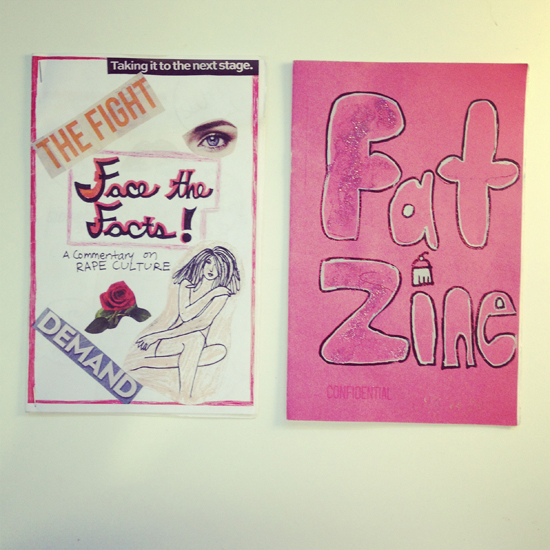 Taking it to the next stage.
THE FIGHT
Face the
Facts!
A Commentary on
RAPE CULTURE
DEMAND
Fat
Zine
CONFIDENTIAL